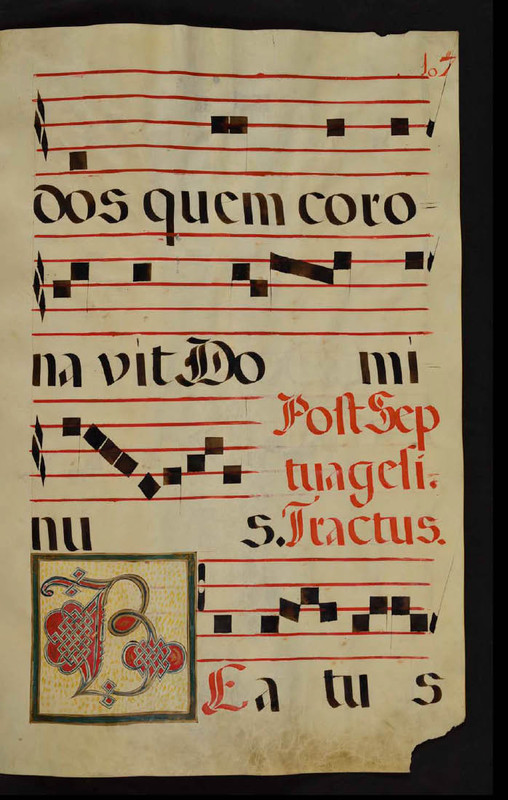 107
dos quem coro=
na vit Do mi-
Post Sep
tuagesi:
nu s. Tractus.
BEa tu s